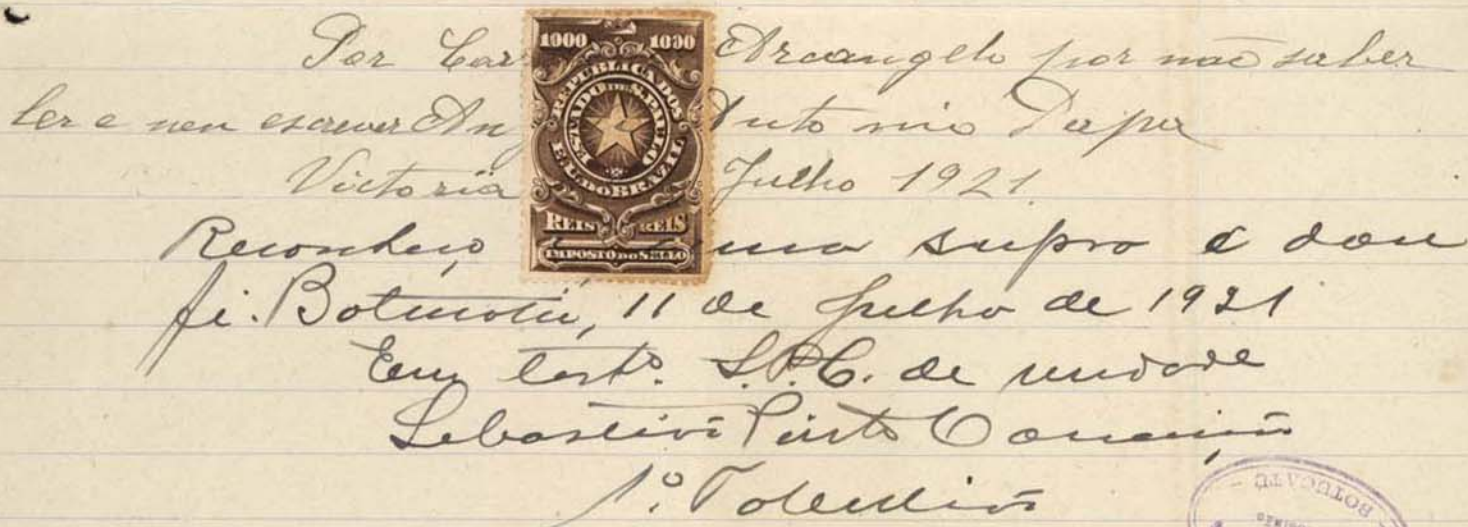 Por Car Arcangelo por não saber
ler e nen escrever An Antonio Papa
Victoria Julho 1921.
1000 1000
REPUBLICA DOS E.U. DO BRAZIL
ESTADO DE S. PAULO
REIS REIS
IMPOSTO DO SELLO
Reconheço supro e dou
fé. Botucatú, 11 de Julho de 1921
Em testº. S.P.C. de verdade
Sebastião Pinto Conceição
1º Tabellião
BOTUCATU